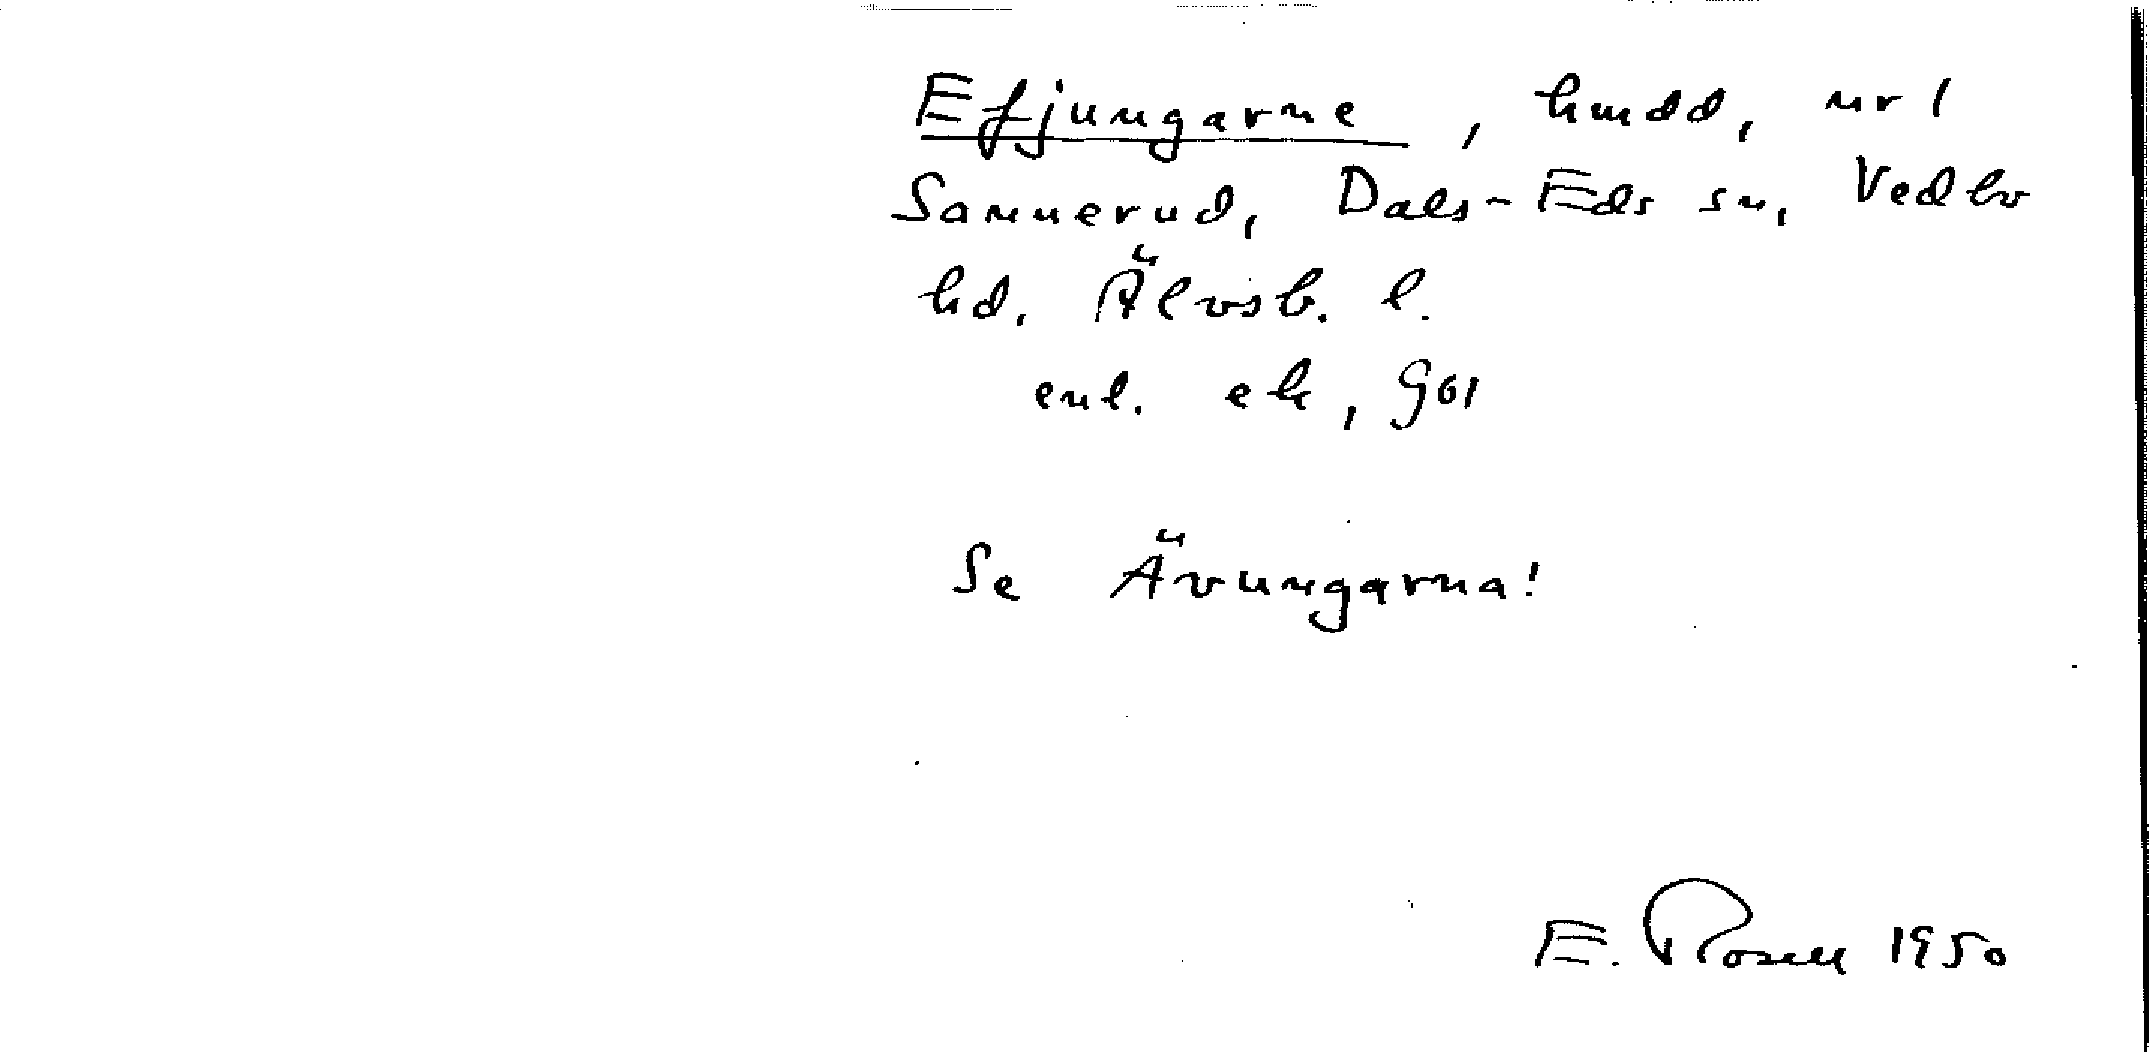 Efjungarne, hmdd, nr 1
Sannerud, Dals-Eds sn, Vedbo
hd, Älvsb. l.
enl. ek, G61
Se Ävungarna!
E. Rosell 1950